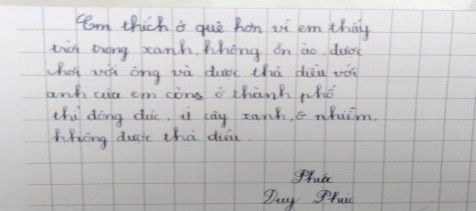 Em thích ở quê hơn vì em thấy
trời trong xanh, không ồn ào, được
chơi với ông và được thả diều với
anh của em còn ở thành phố
thì đông đúc, ít cây xanh, ô nhiễm,
không được thả diều.
Phúc
Duy Phúc